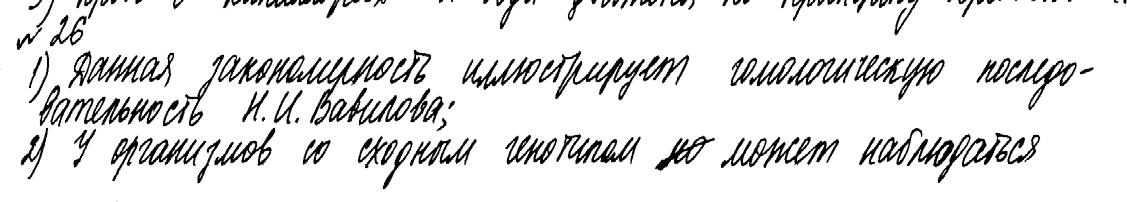 № 26
1) Данная закономерность иллюстрирует гомологическую последо-
вательность Н.И. Вавилова;
2) У организмов со сходным генотипом может наблюдаться